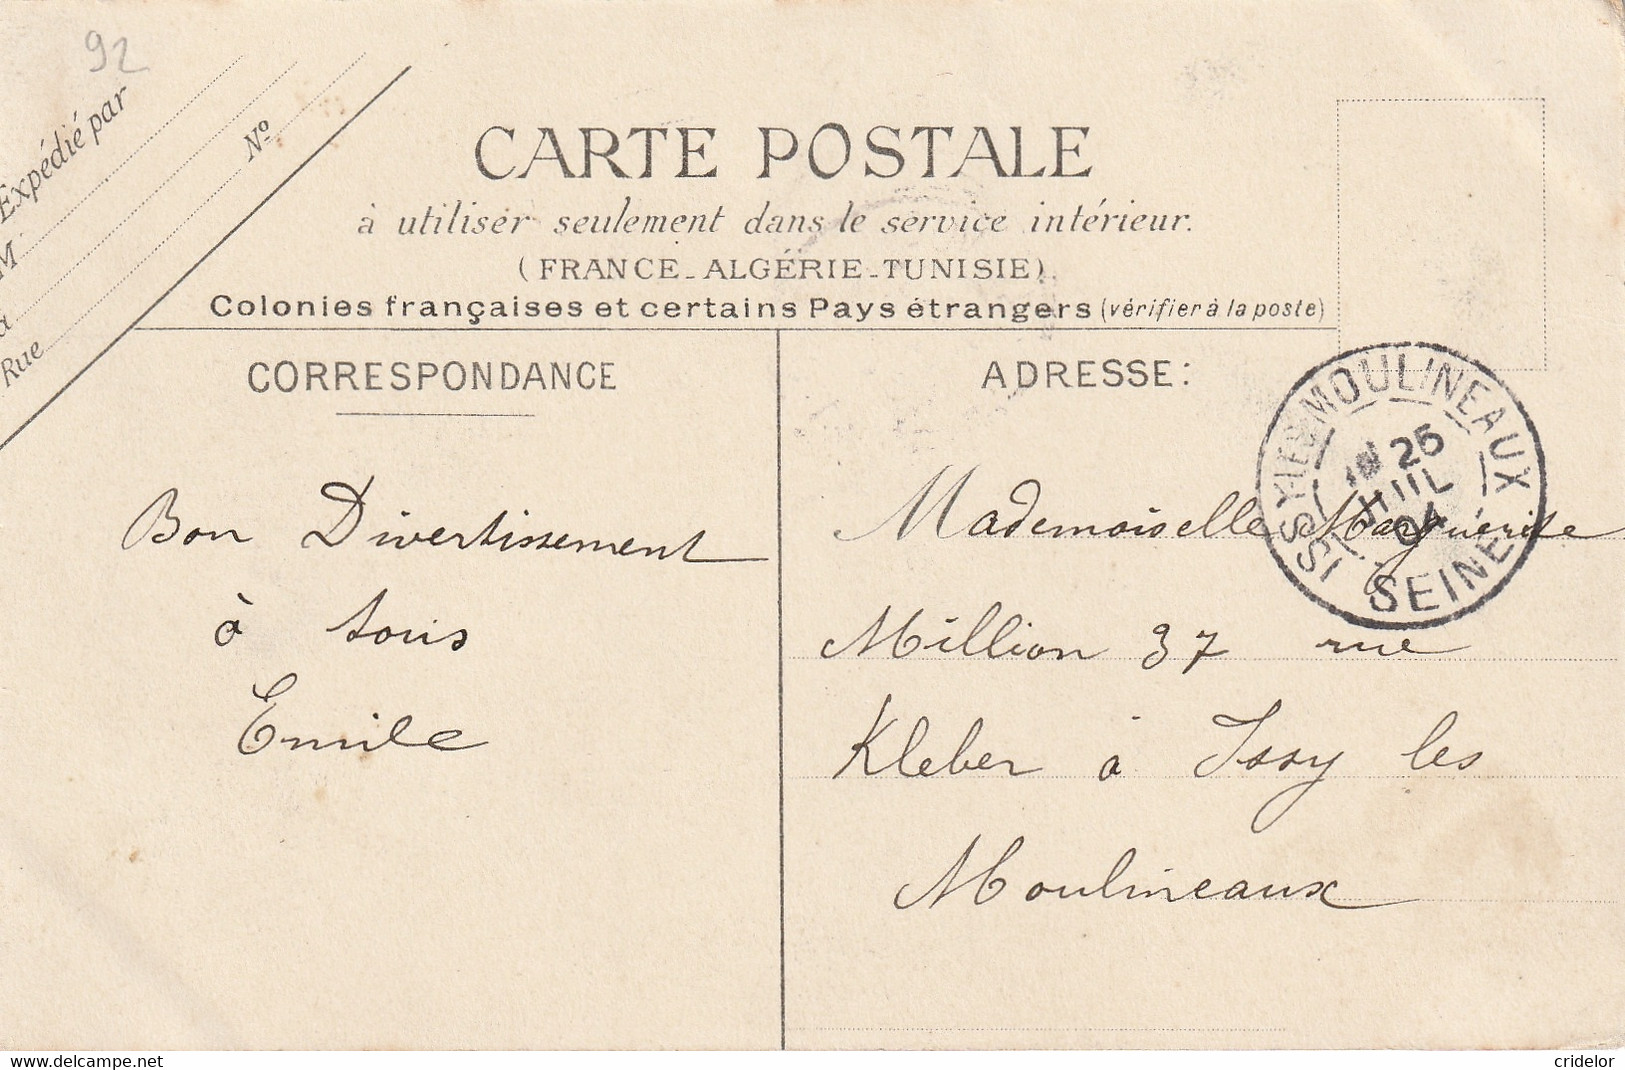 92
Expédié par
M
à
Rue
Nº
CARTE POSTALE
à utiliser seulement dans le service intérieur.
(FRANCE-ALGÉRIE-TUNISIE)
Colonies françaises et certains Pays étrangers (vérifier à la poste)
CORRESPONDANCE
ADRESSE:
ISSY LES MOULINEAUX
25
JUIL
04
SEINE
Bon Divertissement
à tous
Emile
Mademoiselle Marguerite
Million 37 rue
Kleber à Issy les
Moulineaux
Delcampe.net
cridelor